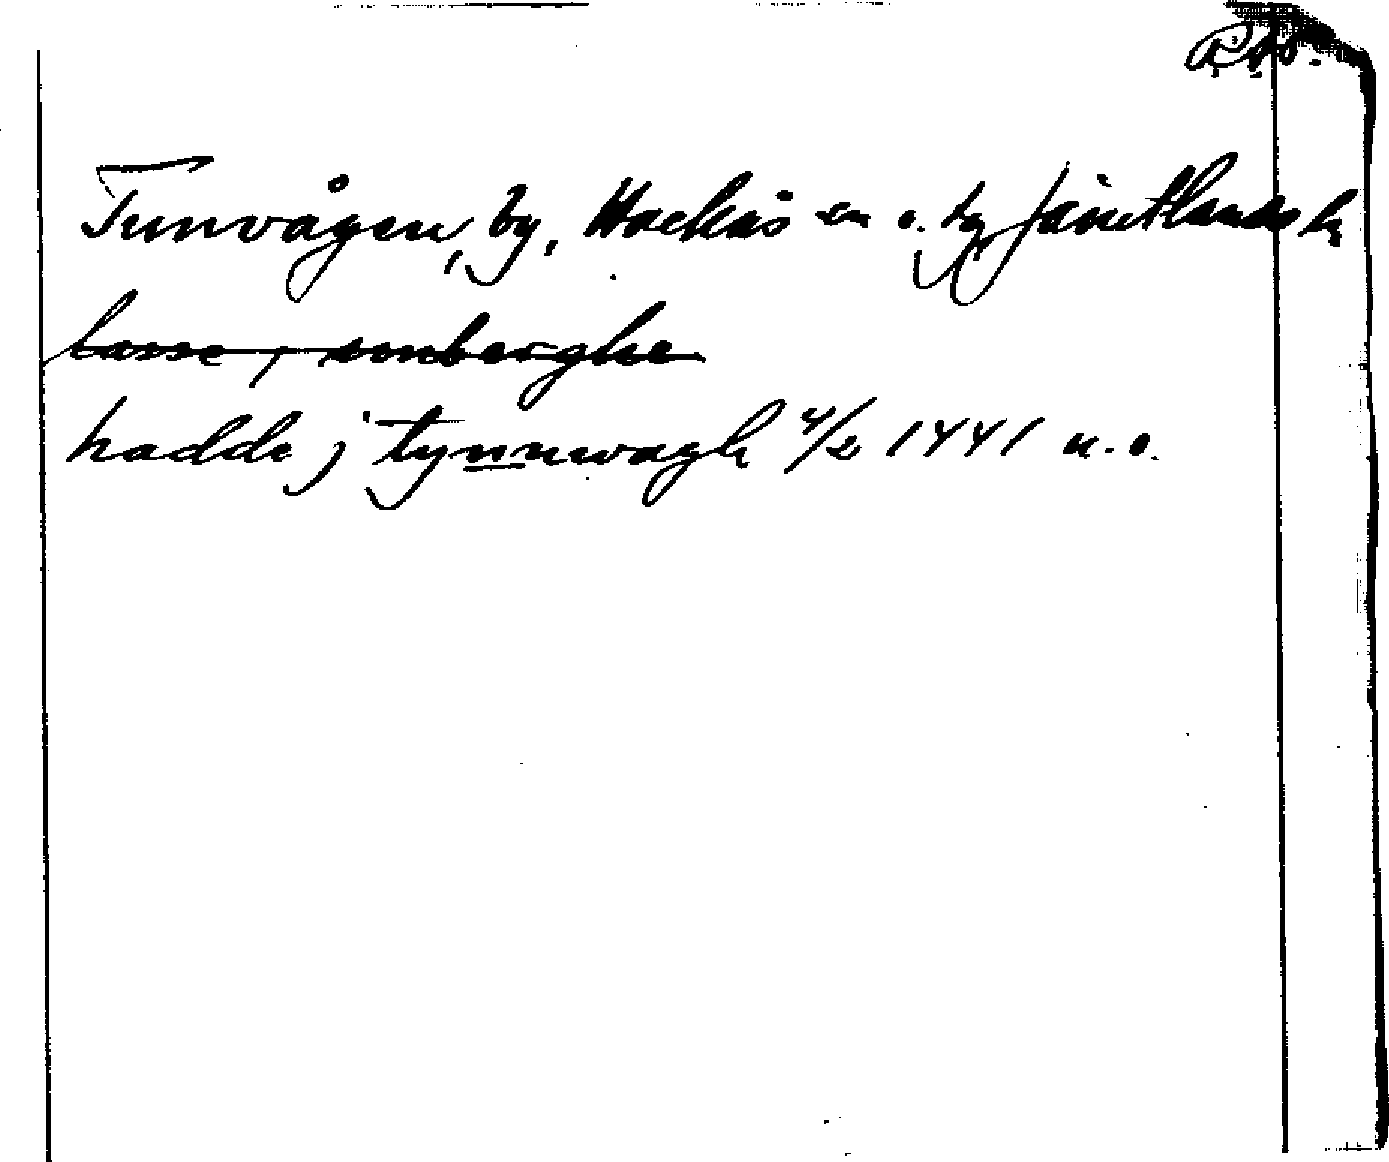 Tunvågen, by, Hackås sn o. tg Jämtlands l.
lasse j smberghe
hadde j tynnwagh 4/2 1441 u.o.